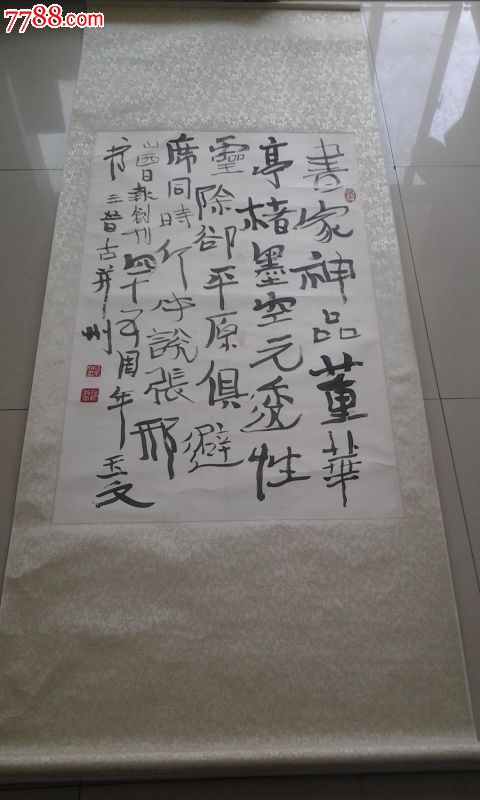 7788.com
書家神品董華
亭楮墨空元透性
靈除卻平原俱避
席同時何必說張邢
山西日報創刊四十五周年 玉文
书 三晉古并州